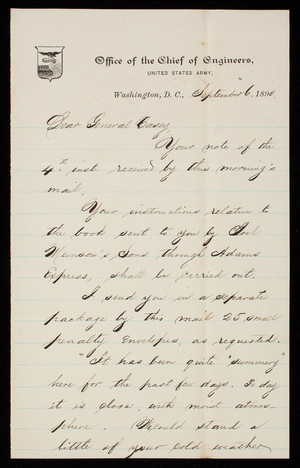 Office of the Chief of Engineers,
UNITED STATES ARMY,
Washington, D. C., September 6, 1890.
Dear General Casey,
Your note of the
4th inst. received by this morning's
mail.
Your instructions relative to
the book sent to you by Joel
Munson's Sons through Adams
Express, shall be carried out.
I send you in a separate
package by this mail 25 small
penalty envelopes, as requested.
It has been quite "summery"
here for the past few days. To day
it is close with moist atmos-
phere. Should stand a
little of your cold weather